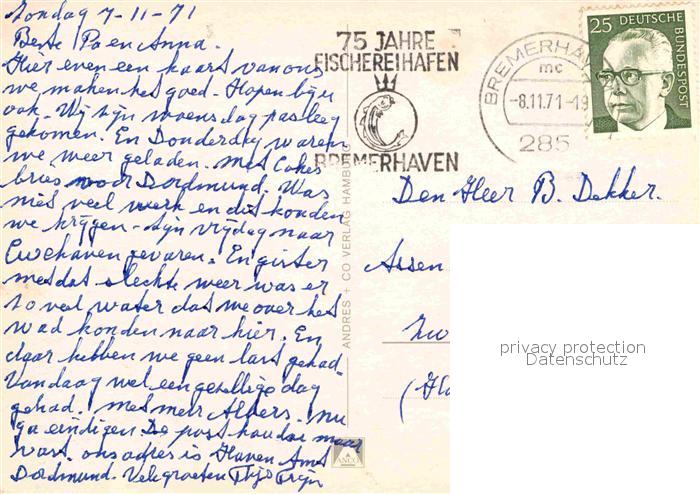 Zondag 7-11-71
Beste Pa en Anna.
Hier even een kaart van ons
we maken het goed. Hopen bij u
ook. Wij zijn woensdag pas leeg
gekomen. En Donderdag waren
we weer geladen. Met Cokes
bries voor Dordmund. Was
niet veel werk en dit konden
we krijgen. Zijn vrijdag naar
Cuxhaven gevaren. En gister
met dat slechte weer was er
zo veel water dat we over het
wad konden naar hier. En
daar hebben we geen last gehad.
Vandaag wel een gezellige dag
gehad. Met meer Albers. Nu
ga eindigen De post houdoe maar
vast. ons adres is Haven Amt
Dordmund. Vele groeten Thijs Trijn
75 JAHRE
FISCHEREIHAFEN
BREMERHAVEN
BREMERHAV
mc
-8.11.71-19
285
25 DEUTSCHE
BUNDESPOST
ANDRES + CO VERLAG HAMBURG
ANCO
Den Heer B. Dekker.
Assen
privacy protection
Datenschutz